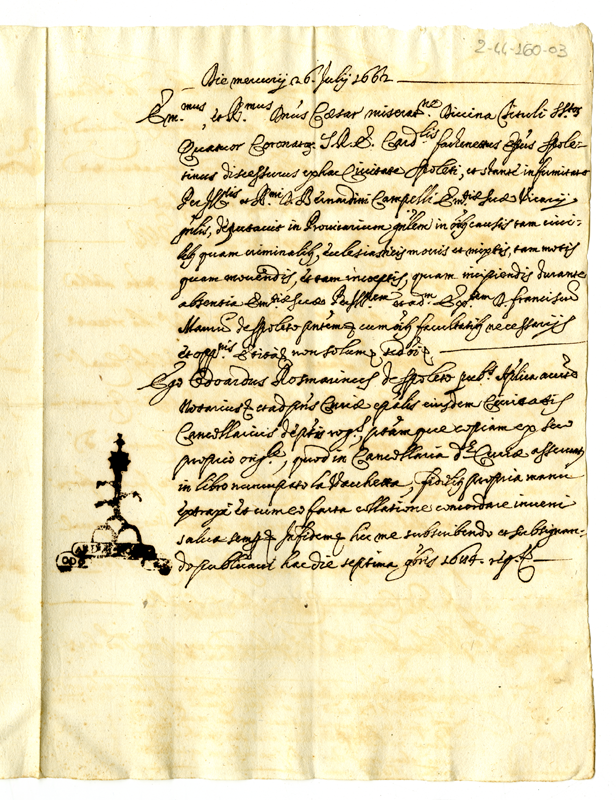 2-44-160-03
Die mercurij 26. Julij 1662
Em.mus, et R.mus Dnus Cæsar miserat.ne Divina tituli SS.tor
Quatuor Coronator. S. R. E. Card.lis Fachenettus Epus Spole-
tinus discessurus ex hac Civitate Spoleti, et stante infirmitate
et R.mi D. Bernardini Campelli Em.tiæ Suæ Vicarij
gnlis, deputavit in Provicarium gnlem in oibus causis tam civi-
libus quam criminalibus, ecclesiasticis et mixtis, tam motis
quam movendis, et tam inceptis, quam incipiendis durante
absentia Em.tiæ Suæ D. Franciscum
Maurum de Spoleto cum oibus facultatibus necessarijs
et opp.nis non solum sed
Ego Odoardus Rosmarineus de Spoleto pub.s Aplica aucte
Notarius, et ad pns Curiæ epalis eiusdem Civitatis
Cancellarius deptus rog.s, copiam ex suo
proprio orig.li, quod in Cancellaria d.æ Curiæ asservatur
in libro nuncupato la Vacchetta, propria manu
extraxi et cum eo facta collatione concordare inveni
salva semper In fidem hic me subscribendo et subsignan-
do publicavi hac die septima 9bris rog.s
ODO